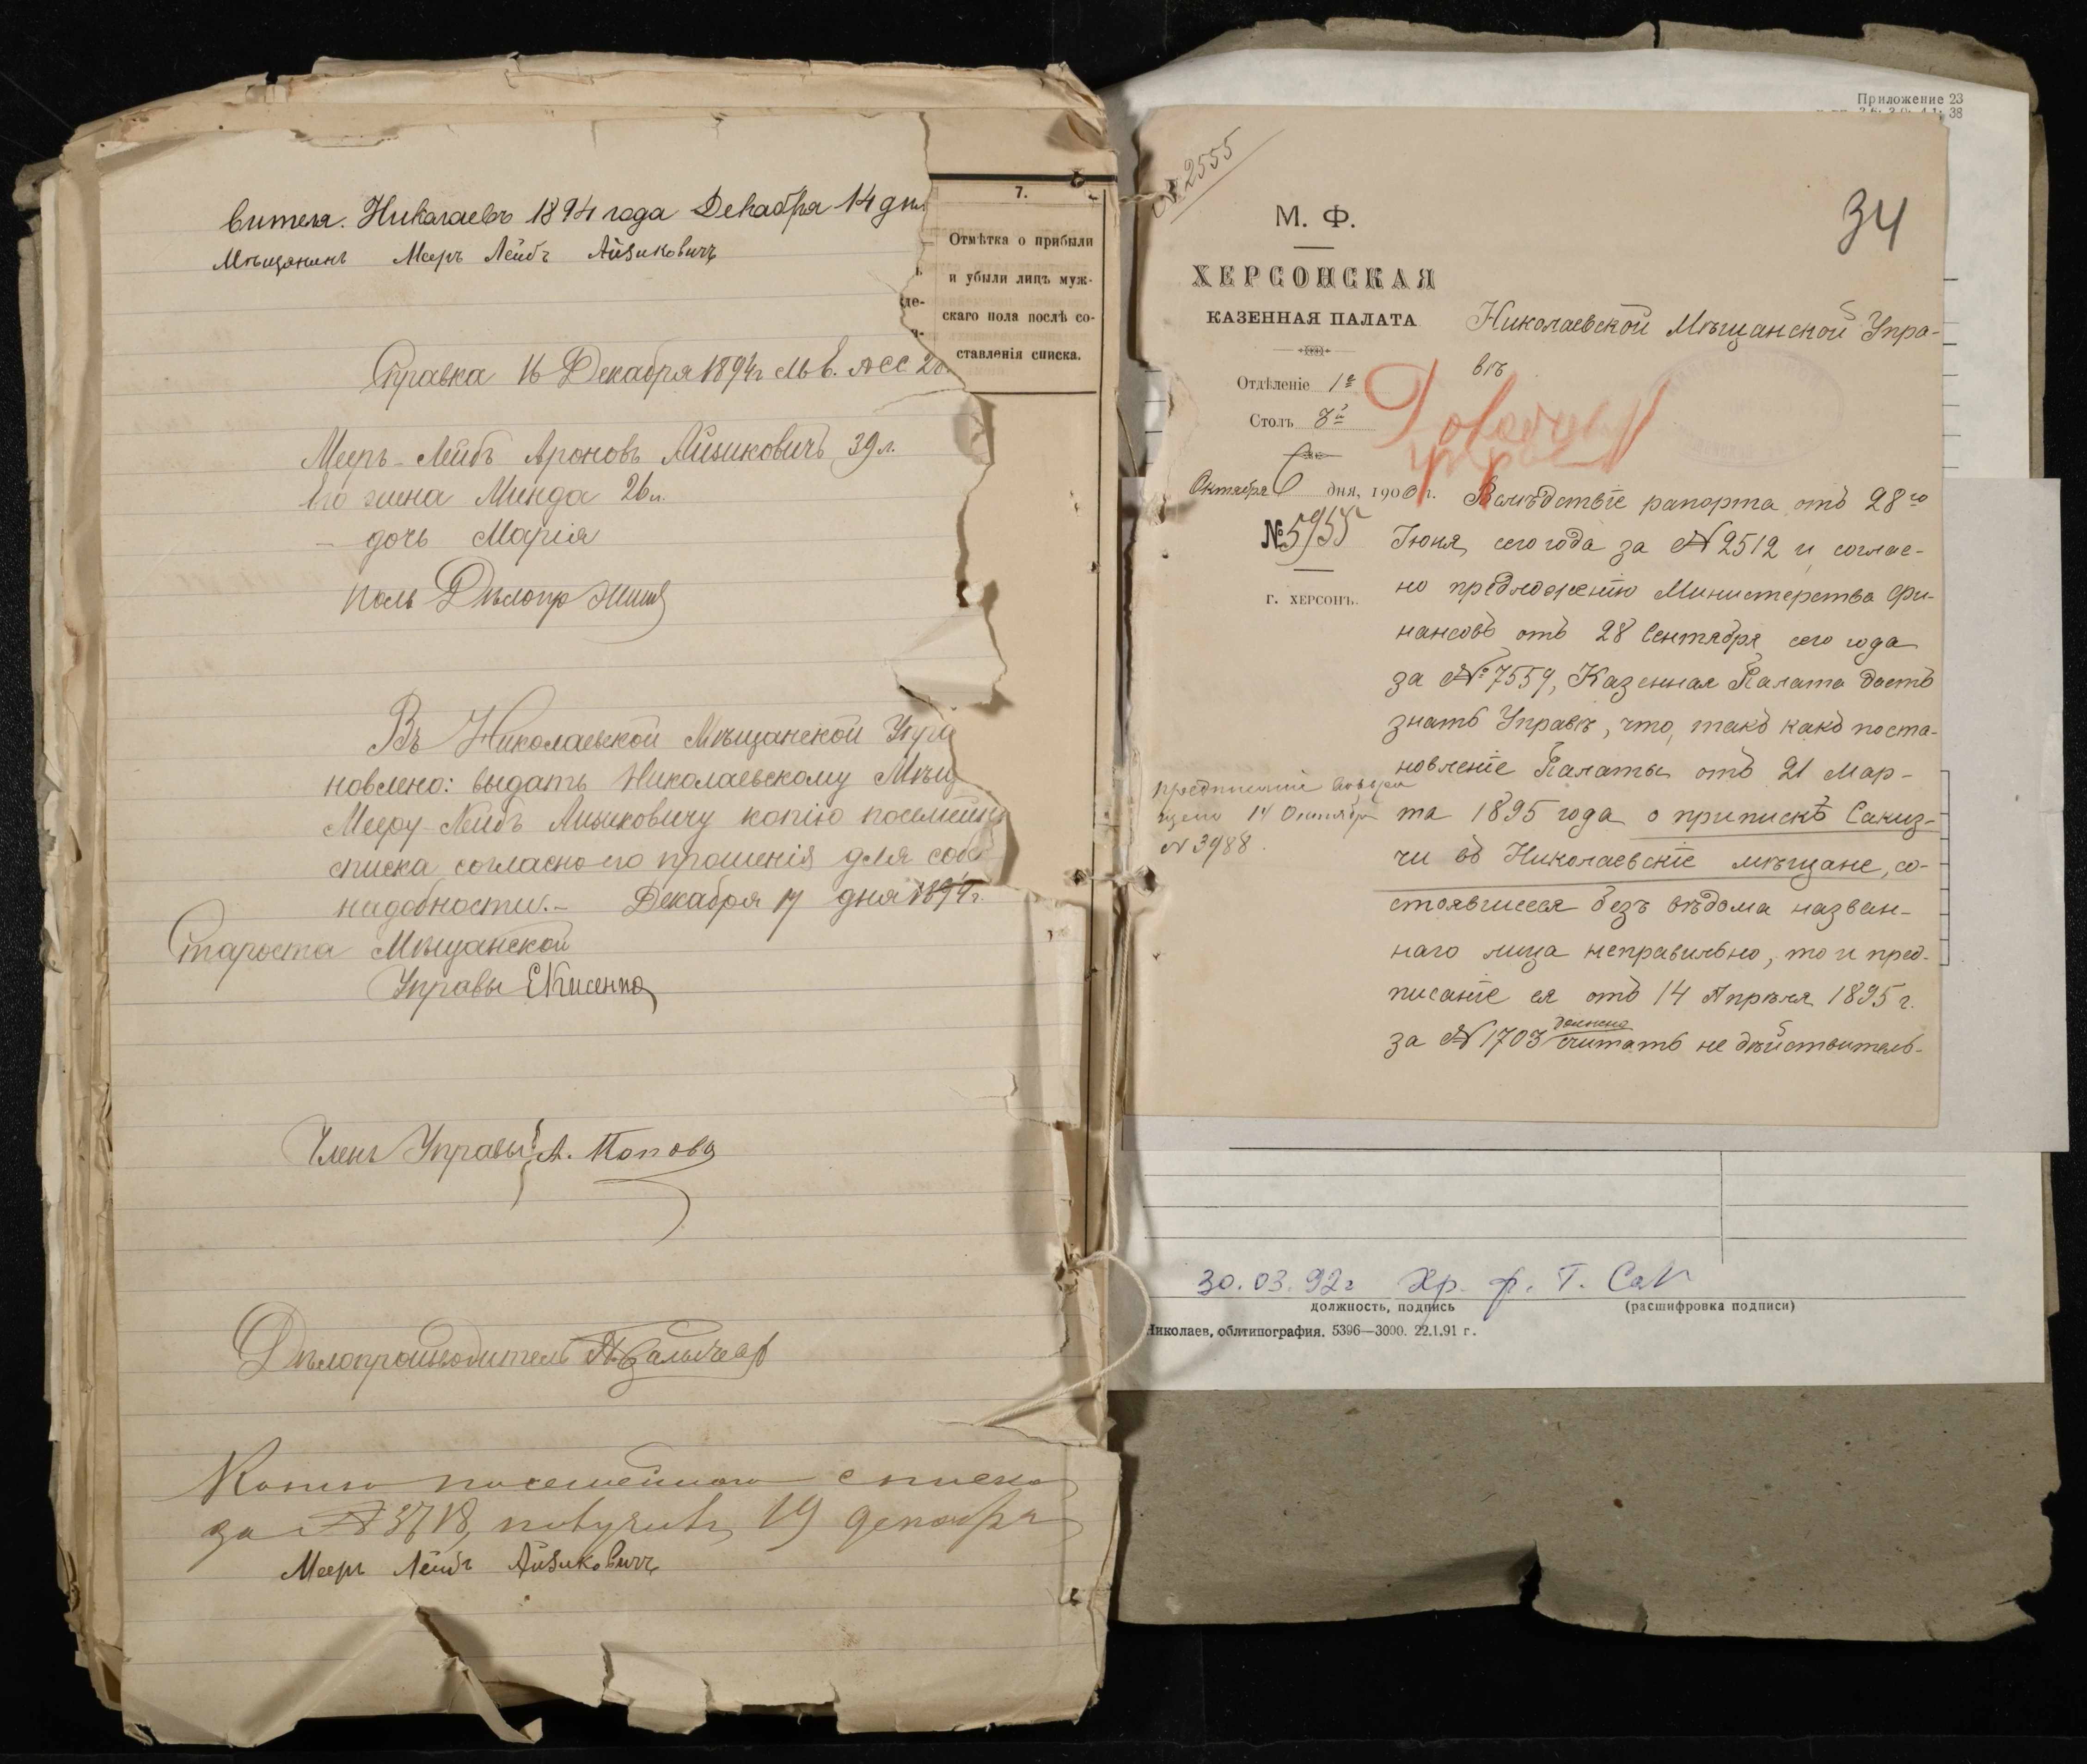 вителя. Николаевъ 1894 года Декабря 14 дня
Мѣщанинъ Мееръ Лейбъ Айзиковичъ
Справка 16 Декабря 1894г
Меeръ-Лейбъ Ароновъ Айзиковичъ 39 л.
Его жена Минда 26 л.
— дочь Марія
Въ Николаевской Мѣщанской Упра
новлено: выдать Николаевскому Мѣщ
Мееру-Лейбъ Айзиковичу копію посемейн
списка согласно его прошенія для соб
надобности.- Декабря 17 дня 1894 г.
Староста Мѣщанской
Управы
Членъ Управы А. Попова
Дѣлопроизводитель
Копію посемейнаго списка
за № 3718, получилъ 19 декабря
Мееръ Лейбъ Айзиковичъ
7.
Отмѣтка о прибыли
и убыли лицъ муж-
скаго пола послѣ со-
ставленія списка.
Приложение 23
№ 2555
34
М. Ф.
ХЕРСОНСКАЯ
КАЗЕННАЯ ПАЛАТА
Отдѣленіе 1е
Столъ 3й
Октября 6 дня, 1900 г.
№ 5955
г. ХЕРСОНЪ.
Николаевской Мѣщанской Упра-
вѣ
Вслѣдствіе рапорта отъ 28го
Іюня, сего года за № 2512 и соглас-
но предложенію Министерства Фи-
нансовъ отъ 28 Сентября сего года
за № 7559, Казенная Палата даетъ
знать Управѣ, что, такъ какъ поста-
новленіе Палаты отъ 21 Мар-
та 1895 года о припискѣ Сакиз-
чи въ Николаевскіе мѣщане, со-
стоявшееся безъ вѣдома назван-
наго лица неправильно, то и пред-
писаніе ея отъ 14 Апрѣля 1895 г.
за № 1703 должно считать не дѣйствитель-
14 Октября
№ 3988.
30.03.92г
должность, подпись
(расшифровка подписи)
Николаев, облтипография. 5396—3000. 22.1.91 г.